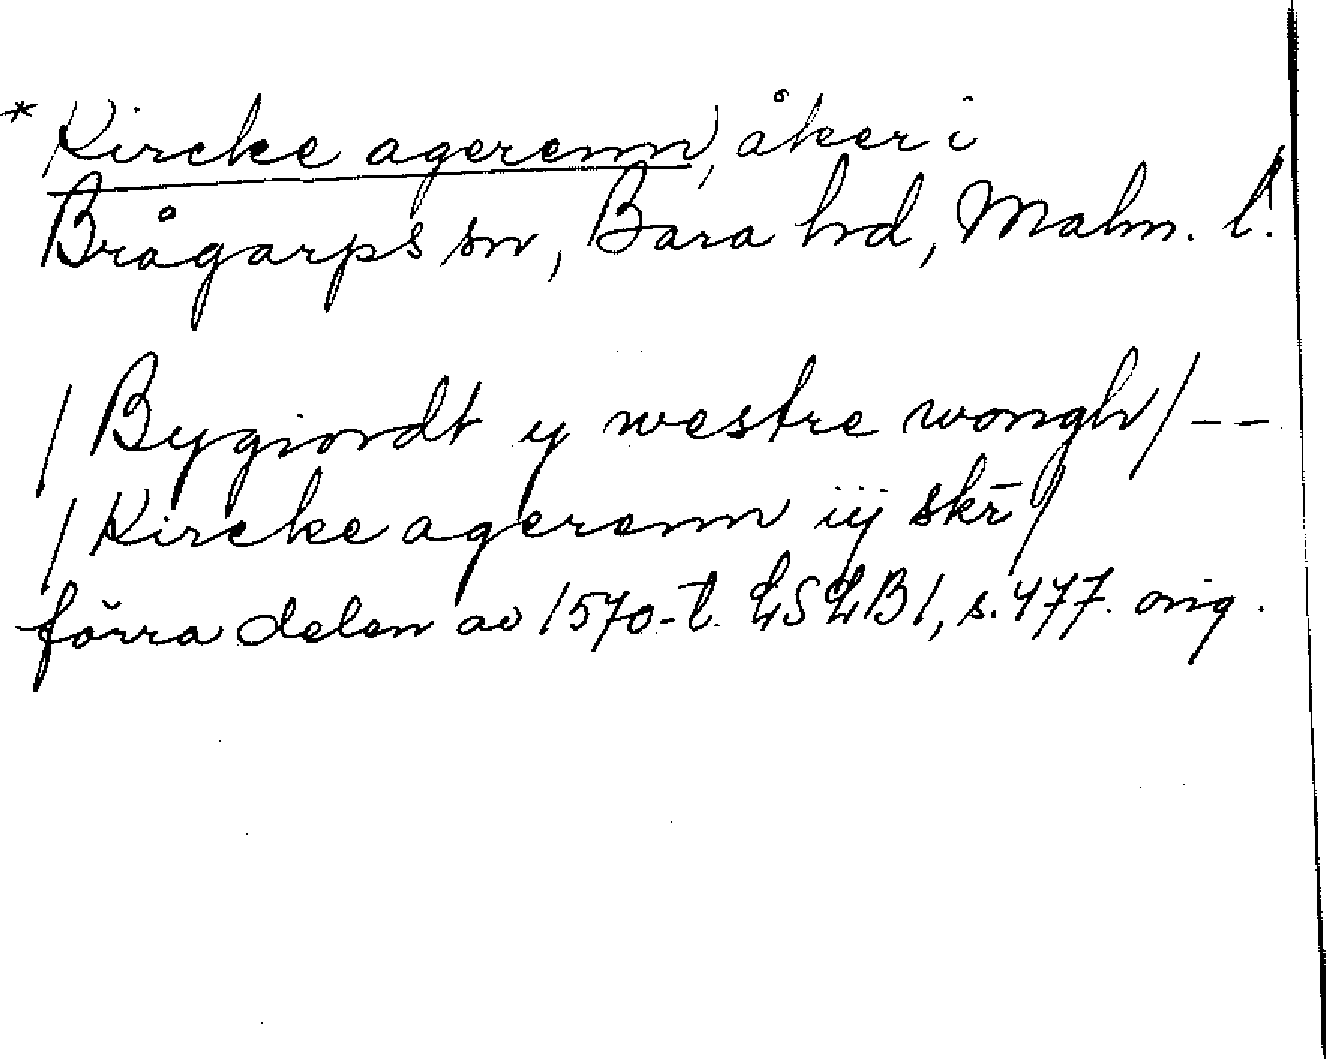 * Kircke agerenn, åker i
Brågarps sn, Bara hd, Malm. l.
/ Bygiordt y westre wongh / --
/ Kircke agerenn iij skr̄ /
förra delen av 1570-t. LSLB 1, s. 477. orig.